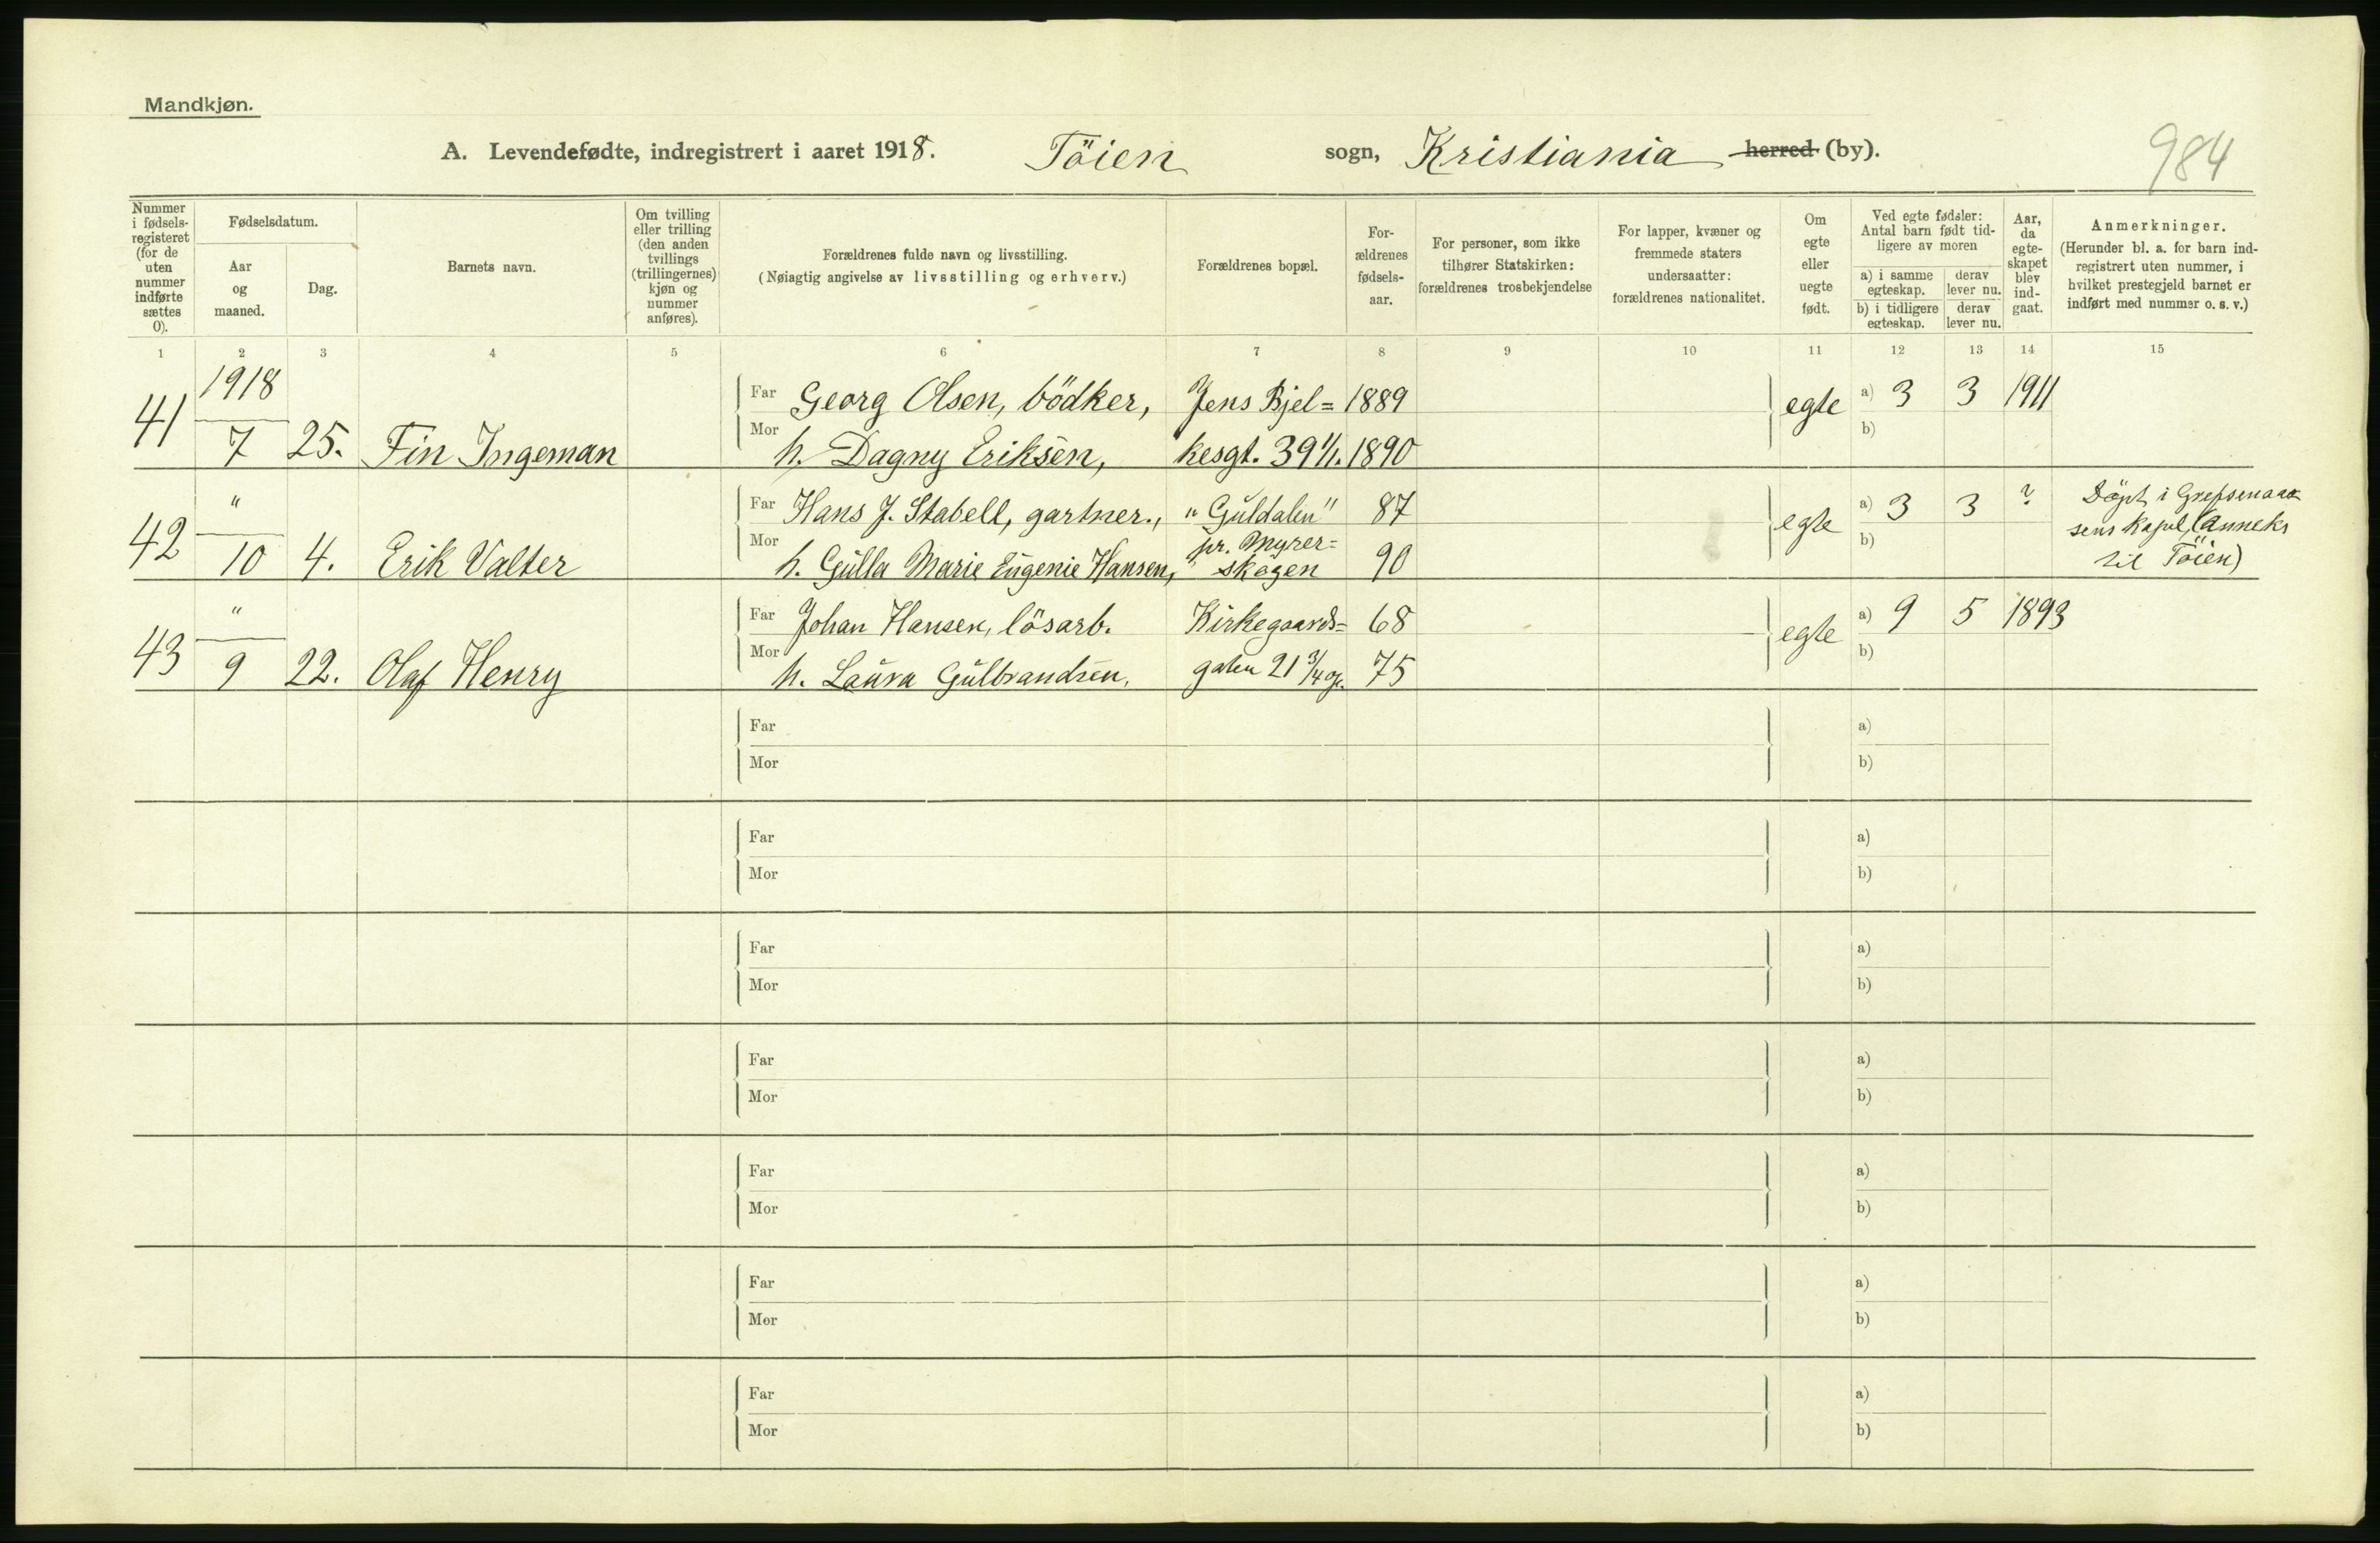 Mandkjøn.
A. Levendefødte, indregistrert i aaret 1918. Töien sogn, Kristiania herred (by).
984
Nummer i fødselsregisteret (for de uten nummer indførte sættes 0).
Fødselsdatum.
Aar og maaned.
Dag.
Barnets navn.
Om tvilling eller trilling (den anden tvillings (trillingernes) kjøn og nummer anføres).
Forældrenes fulde navn og livsstilling.
(Nøiagtig angivelse av livsstilling og erhverv.)
Forældrenes bopæl.
Forældrenes fødselsaar.
For personer, som ikke tilhører Statskirken: forældrenes trosbekjendelse
For lapper, kvæner og fremmede staters undersaatter: forældrenes nationalitet.
Om egte eller uegte født.
Ved egte fødsler: Antal barn født tidligere av moren
a) i samme egteskap.
derav lever nu.
b) i tidligere egteskap.
derav lever nu.
Aar, da egteskapet blev indgaat.
Anmerkninger.
(Herunder bl. a. for barn indregistrert uten nummer, i hvilket prestegjeld barnet er indført med nummer o. s. v.)
1 2 3 4 5 6 7 8 9 10 11 12 13 14 15
1918
41 7 25. Fin Ingeman
Far Georg Olsen, bödker, Jens Bjel= 1889 egte a) 3 3 1911
Mor h. Dagny Eriksen, kesgt. 39 1/1. 1890 b)
"
42 10 4. Erik Valter
Far Hans J. Stabell, gartner., "Guldalen" 87 egte a) 3 3 ?
Mor h. Gulla Marie Eugenie Hansen, pr. Myrer= skogen 90 b)
Döpt i Grefsenaa
sens kapel (Anneks
til Töien)
"
43 9 22. Olaf Henry
Far Johan Hansen, lösarb. Kirkegaards= 68 egte a) 9 5 1893
Mor h. Laura Gulbrandsen. gaten 21 3/4 op. 75 b)
Far a)
Mor b)
Far a)
Mor b)
Far a)
Mor b)
Far a)
Mor b)
Far a)
Mor b)
Far a)
Mor b)
Far a)
Mor b)